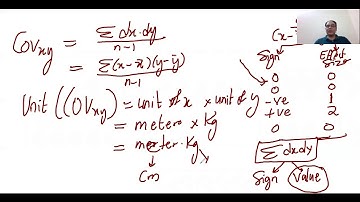 Cov xy = Σdx.dy / n-1
= Σ(x-x̄)(y-ȳ) / n-1
Unit (Cov xy) = unit of x × unit of y
= meter × Kg
= meter.Kg
Cm
(x-
Sign Effect size
0 0
0 0
-ve 1
+ve 2
0 0
Σdxdy
Sign Value